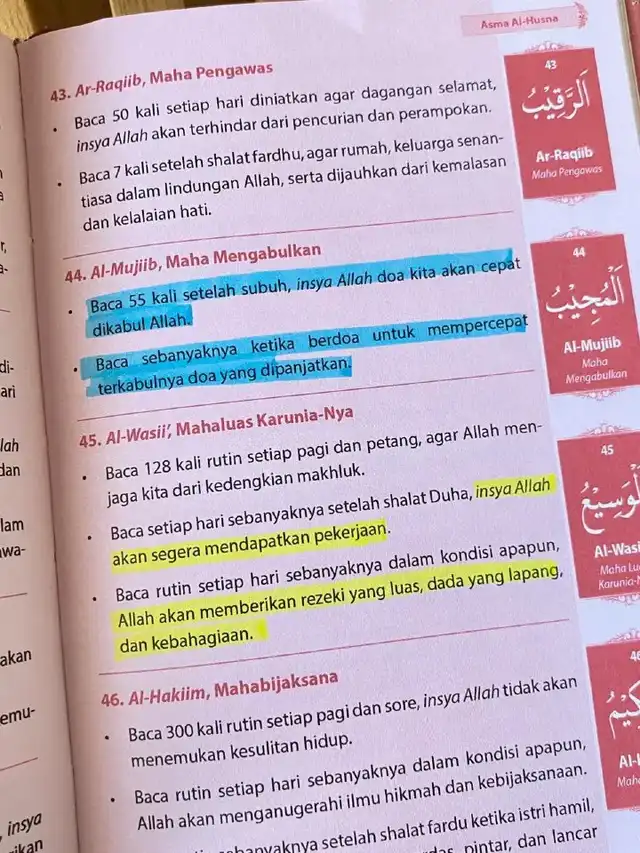 Asma Al-Husna
43. Ar-Raqiib, Maha Pengawas
• Baca 50 kali setiap hari diniatkan agar dagangan selamat,
insya Allah akan terhindar dari pencurian dan perampokan.
• Baca 7 kali setelah shalat fardhu, agar rumah, keluarga senan-
tiasa dalam lindungan Allah, serta dijauhkan dari kemalasan
dan kelalaian hati.
43
الرَّقِيْبُ
Ar-Raqiib
Maha Pengawas
44. Al-Mujiib, Maha Mengabulkan
• Baca 55 kali setelah subuh, insya Allah doa kita akan cepat
dikabul Allah.
• Baca sebanyaknya ketika berdoa untuk mempercepat
terkabulnya doa yang dipanjatkan.
44
الْمُجِيْبُ
Al-Mujiib
Maha
Mengabulkan
45. Al-Wasii', Mahaluas Karunia-Nya
• Baca 128 kali rutin setiap pagi dan petang, agar Allah men-
jaga kita dari kedengkian makhluk.
• Baca setiap hari sebanyaknya setelah shalat Duha, insya Allah
akan segera mendapatkan pekerjaan.
• Baca rutin setiap hari sebanyaknya dalam kondisi apapun,
Allah akan memberikan rezeki yang luas, dada yang lapang,
dan kebahagiaan.
45
Al-Wasi
Maha Lu
Karunia-
46. Al-Hakiim, Mahabijaksana
• Baca 300 kali rutin setiap pagi dan sore, insya Allah tidak akan
menemukan kesulitan hidup.
• Baca rutin setiap hari sebanyaknya dalam kondisi apapun,
Allah akan menganugerahi ilmu hikmah dan kebijaksanaan.
setelah shalat fardu ketika istri hamil,
pintar, dan lancar
lah
dan
lam
akan
emu-
insya